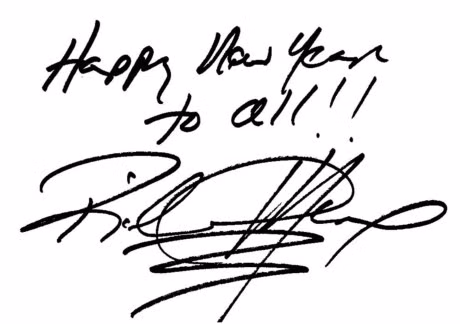 Happy New Year
to all!!!